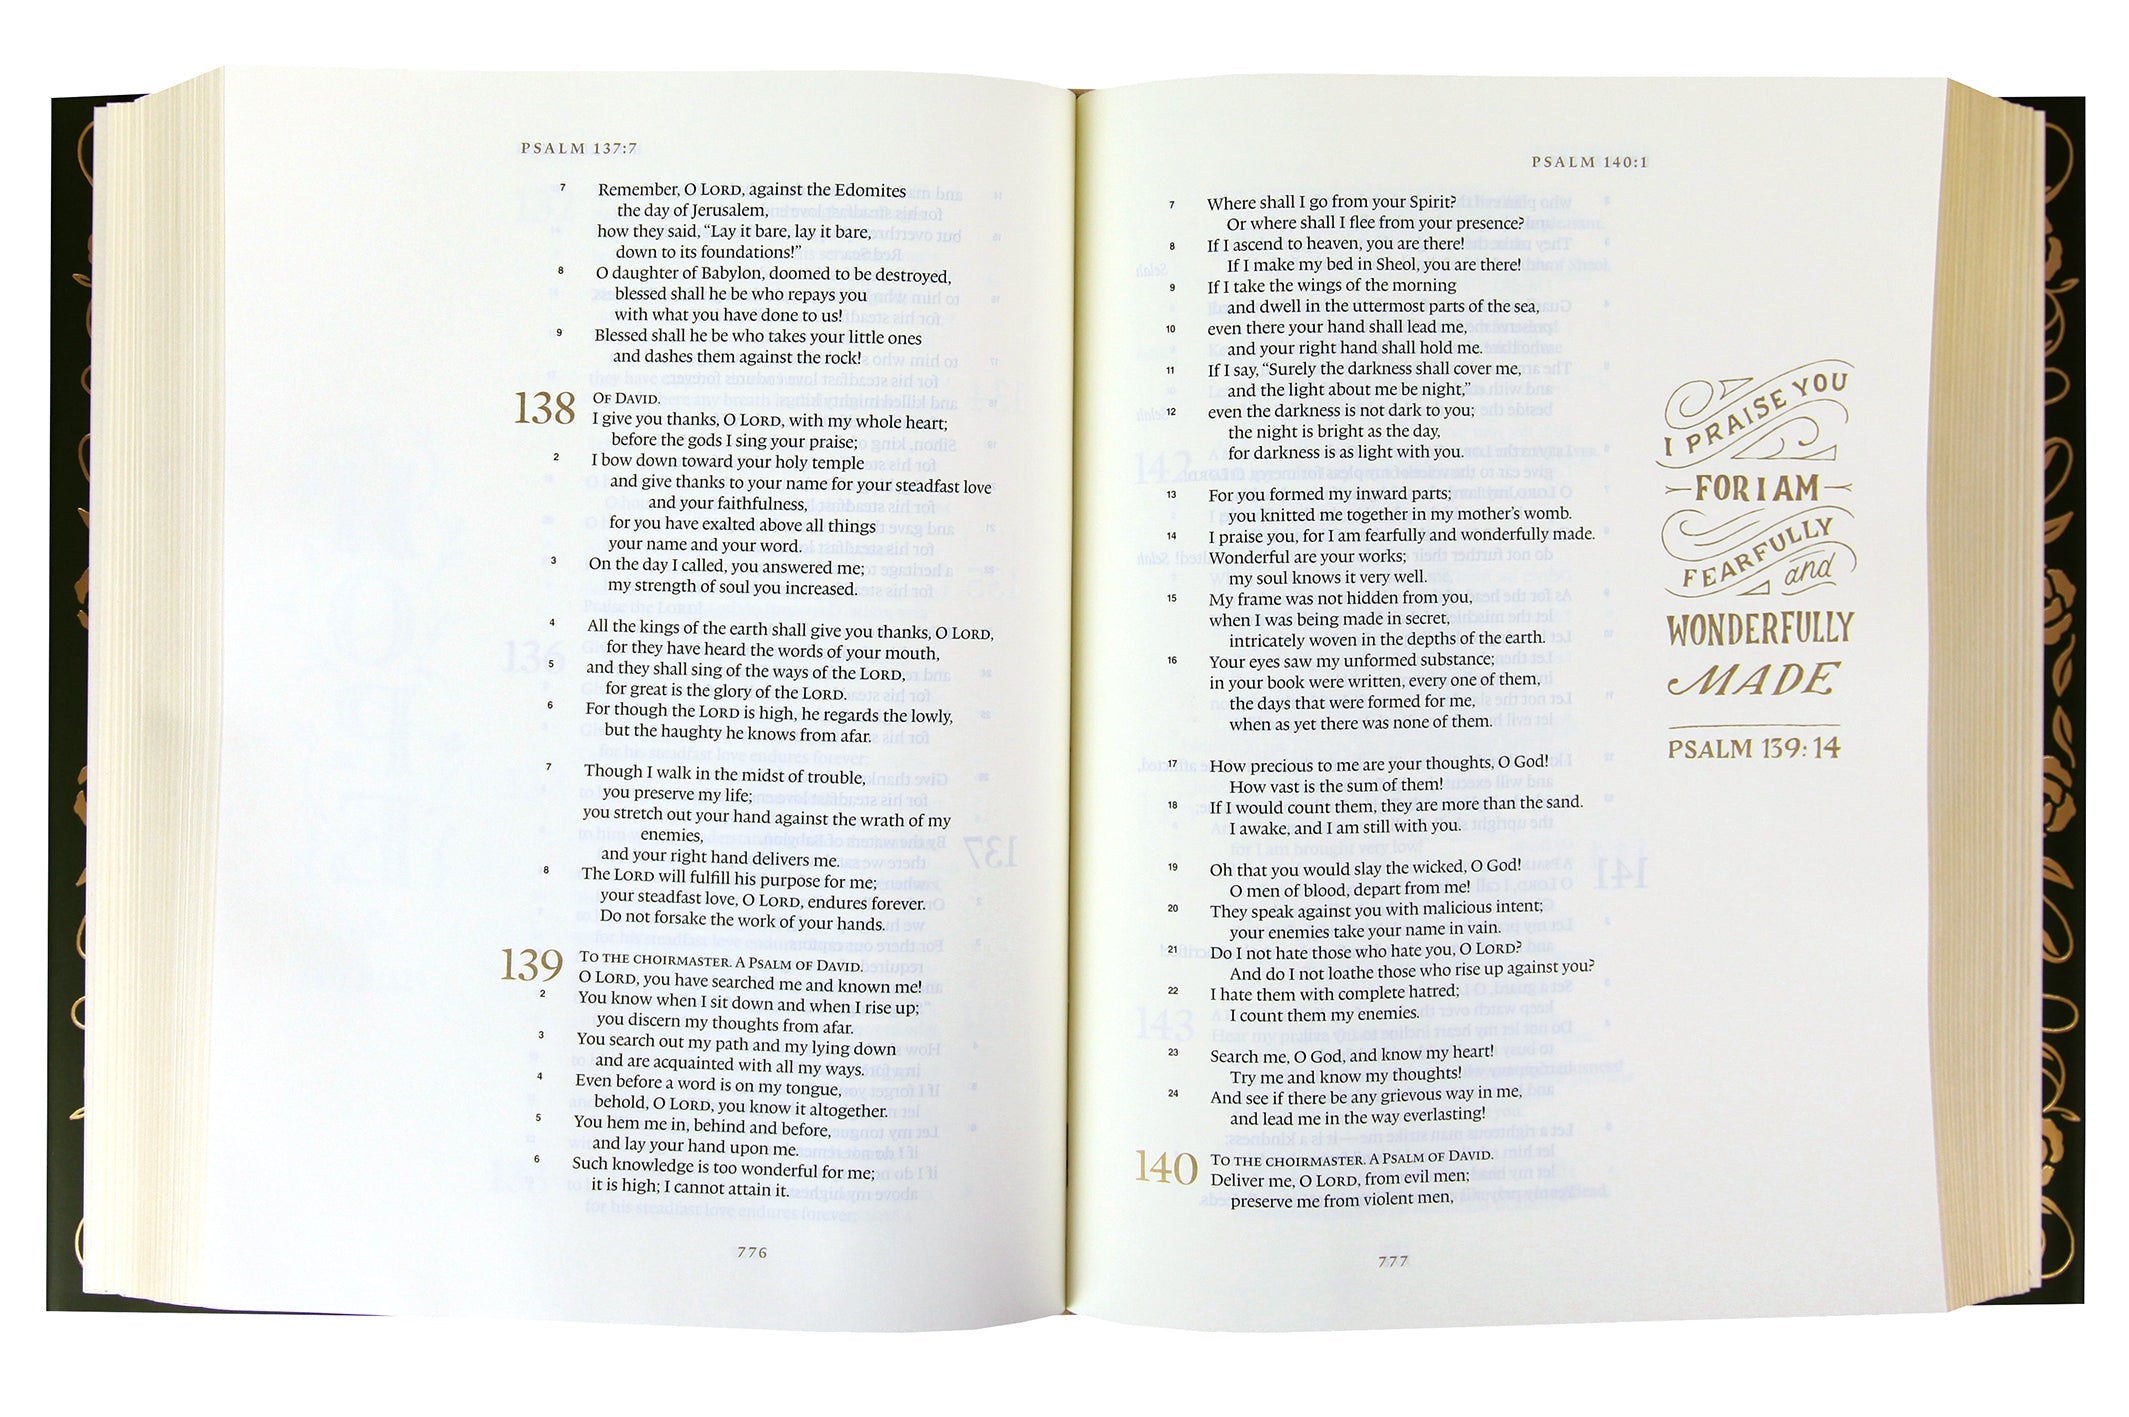 PSALM 137:7
7 Remember, O LORD, against the Edomites
the day of Jerusalem,
how they said, “Lay it bare, lay it bare,
down to its foundations!”
8 O daughter of Babylon, doomed to be destroyed,
blessed shall he be who repays you
with what you have done to us!
9 Blessed shall he be who takes your little ones
and dashes them against the rock!
138 OF DAVID.
I give you thanks, O LORD, with my whole heart;
before the gods I sing your praise;
2 I bow down toward your holy temple
and give thanks to your name for your steadfast love
and your faithfulness,
for you have exalted above all things
your name and your word.
3 On the day I called, you answered me;
my strength of soul you increased.
4 All the kings of the earth shall give you thanks, O LORD,
for they have heard the words of your mouth,
5 and they shall sing of the ways of the LORD,
for great is the glory of the LORD.
6 For though the LORD is high, he regards the lowly,
but the haughty he knows from afar.
7 Though I walk in the midst of trouble,
you preserve my life;
you stretch out your hand against the wrath of my
enemies,
and your right hand delivers me.
8 The LORD will fulfill his purpose for me;
your steadfast love, O LORD, endures forever.
Do not forsake the work of your hands.
139 TO THE CHOIRMASTER. A PSALM OF DAVID.
O LORD, you have searched me and known me!
2 You know when I sit down and when I rise up;
you discern my thoughts from afar.
3 You search out my path and my lying down
and are acquainted with all my ways.
4 Even before a word is on my tongue,
behold, O LORD, you know it altogether.
5 You hem me in, behind and before,
and lay your hand upon me.
6 Such knowledge is too wonderful for me;
it is high; I cannot attain it.
776
PSALM 140:1
7 Where shall I go from your Spirit?
Or where shall I flee from your presence?
8 If I ascend to heaven, you are there!
If I make my bed in Sheol, you are there!
9 If I take the wings of the morning
and dwell in the uttermost parts of the sea,
10 even there your hand shall lead me,
and your right hand shall hold me.
11 If I say, “Surely the darkness shall cover me,
and the light about me be night,”
12 even the darkness is not dark to you;
the night is bright as the day,
for darkness is as light with you.
13 For you formed my inward parts;
you knitted me together in my mother’s womb.
14 I praise you, for I am fearfully and wonderfully made.
Wonderful are your works;
my soul knows it very well.
15 My frame was not hidden from you,
when I was being made in secret,
intricately woven in the depths of the earth.
16 Your eyes saw my unformed substance;
in your book were written, every one of them,
the days that were formed for me,
when as yet there was none of them.
17 How precious to me are your thoughts, O God!
How vast is the sum of them!
18 If I would count them, they are more than the sand.
I awake, and I am still with you.
19 Oh that you would slay the wicked, O God!
O men of blood, depart from me!
20 They speak against you with malicious intent;
your enemies take your name in vain.
21 Do I not hate those who hate you, O LORD?
And do I not loathe those who rise up against you?
22 I hate them with complete hatred;
I count them my enemies.
23 Search me, O God, and know my heart!
Try me and know my thoughts!
24 And see if there be any grievous way in me,
and lead me in the way everlasting!
140 TO THE CHOIRMASTER. A PSALM OF DAVID.
Deliver me, O LORD, from evil men;
preserve me from violent men,
777
I PRAISE YOU
FOR I AM
FEARFULLY
and
WONDERFULLY
MADE
PSALM 139:14